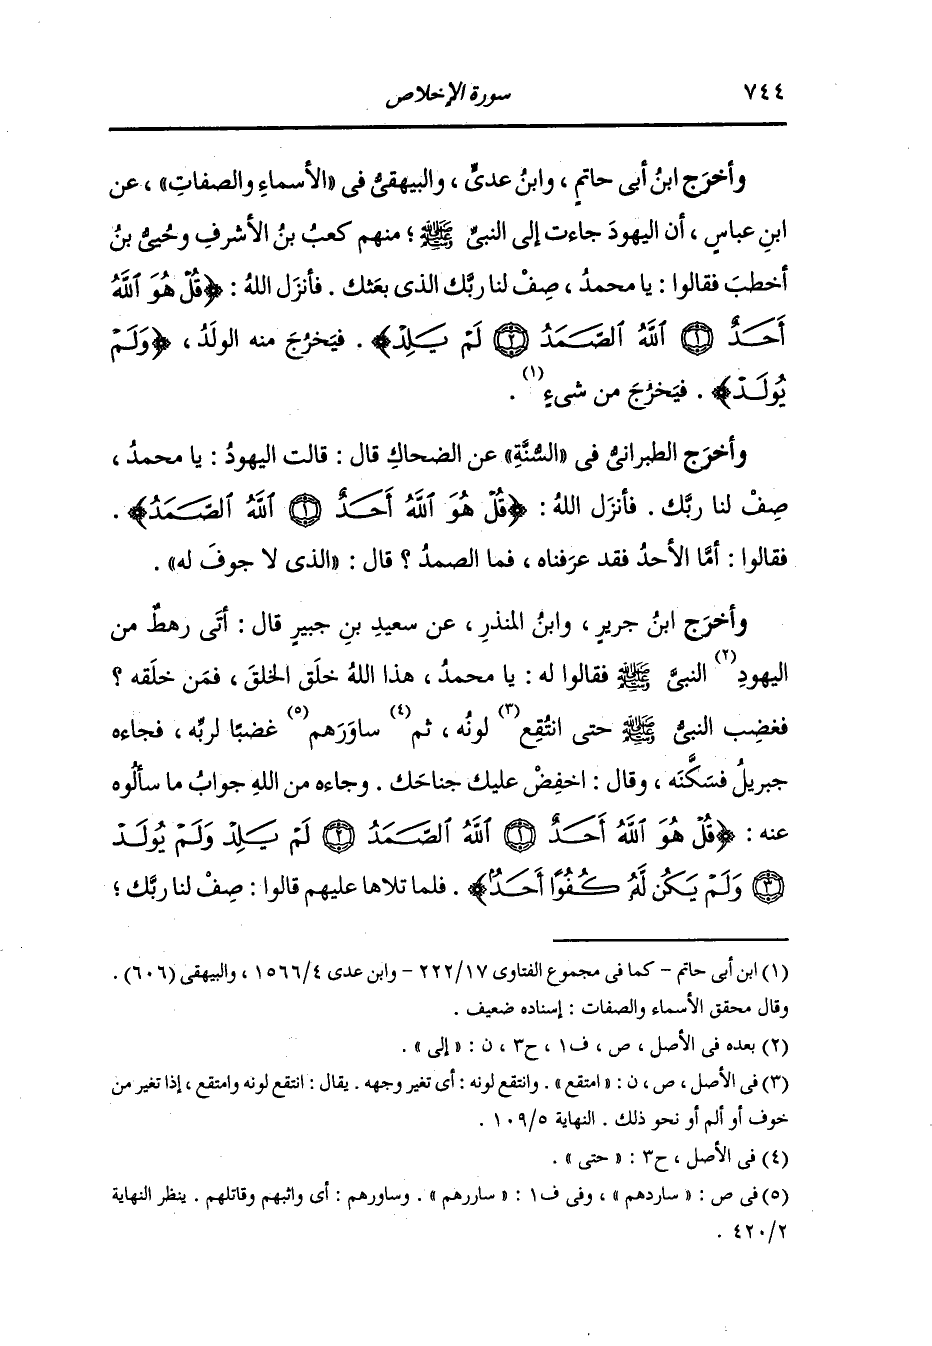 ٧٤٤ سورة الإخلاص
وأخرَج ابنُ أبى حاتمٍ ، وابنُ عدىٍّ ، والبيهقىُّ فى «الأسماءِ والصفاتِ» ، عن
ابنِ عباسٍ ، أن اليهودَ جاءت إلى النبىِّ ﷺ ؛ منهم كعبُ بنُ الأشرفِ وحُيىُّ بنُ
أخطبَ فقالوا : يا محمدُ ، صِفْ لنا ربَّك الذى بعَثك . فأنزَل اللهُ : ﴿قُلْ هُوَ ٱللَّهُ
أَحَدٌ ۝١ ٱللَّهُ ٱلصَّمَدُ ۝٢ لَمْ يَلِدْ﴾ . فيَخرُجَ منه الولدُ ، ﴿وَلَمْ
يُولَدْ﴾ . فيَخرُجَ من شىءٍ(١) .
وأخرَج الطبرانىُّ فى «السُّنَّةِ» عن الضحاكِ قال : قالت اليهودُ : يا محمدُ ،
صِفْ لنا ربَّك . فأنزَل اللهُ : ﴿قُلْ هُوَ ٱللَّهُ أَحَدٌ ۝١ ٱللَّهُ ٱلصَّمَدُ﴾ .
فقالوا : أمَّا الأحدُ فقد عرَفناه ، فما الصمدُ ؟ قال : «الذى لا جوفَ له» .
وأخرَج ابنُ جريرٍ ، وابنُ المنذرِ ، عن سعيدِ بنِ جبيرٍ قال : أتَى رهطٌ من
اليهودِ(٢) النبىَّ ﷺ فقالوا له : يا محمدُ ، هذا اللهُ خلَق الخلقَ ، فمَن خلَقه ؟
فغضِب النبىُّ ﷺ حتى انتُقِع(٣) لونُه ، ثم(٤) ساوَرَهم(٥) غضبًا لربِّه ، فجاءه
جبريلُ فسَكَّنَه ، وقال : اخفِضْ عليك جناحَك . وجاءه من اللهِ جوابُ ما سألُوه
عنه : ﴿قُلْ هُوَ ٱللَّهُ أَحَدٌ ۝١ ٱللَّهُ ٱلصَّمَدُ ۝٢ لَمْ يَلِدْ وَلَمْ يُولَدْ
۝٣ وَلَمْ يَكُن لَّهُۥ كُفُوًا أَحَدٌۢ﴾ . فلما تلاها عليهم قالوا : صِفْ لنا ربَّك ؛
(١) ابن أبى حاتم - كما فى مجموع الفتاوى ١٧/ ٢٢٢ - وابن عدى ٤/ ١٥٦٦ ، والبيهقى (٦٠٦) .
وقال محقق الأسماء والصفات : إسناده ضعيف .
(٢) بعده فى الأصل ، ص ، ف١ ، ح٣ ، ن : « إلى » .
(٣) فى الأصل ، ص ، ن : « امتقع » . وانتقع لونه : أى تغير وجهه . يقال : انتقع لونه وامتقع ، إذا تغير من
خوف أو ألم أو نحو ذلك . النهاية ٥/ ١٠٩ .
(٤) فى الأصل ، ح٣ : « حتى » .
(٥) فى ص : « ساردهم » ، وفى ف١ : « ساررهم » . وساورهم : أى واثبهم وقاتلهم . ينظر النهاية
٢/ ٤٢٠ .